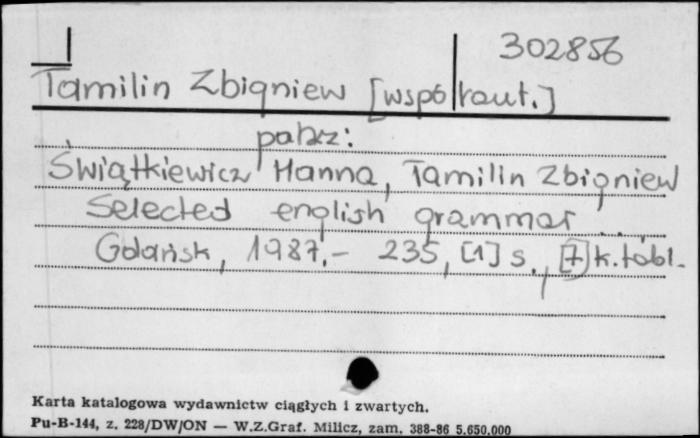 302856
Tamilin Zbigniew [współaut.]
patrz:
Świątkiewicz Hanna, Tamilin Zbigniew
Selected english grammar ...
Gdańsk, 1987.- 235, [1] s., [7] k. tabl.
Karta katalogowa wydawnictw ciągłych i zwartych.
Pu-B-144, z. 228/DW/ON — W.Z.Graf. Milicz, zam. 388-86 5.650.000